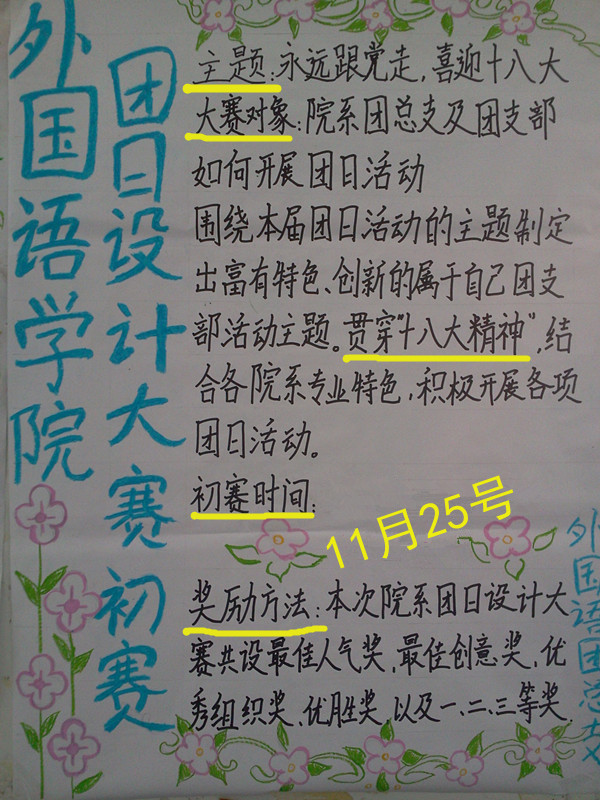 外国语学院
团日设计大赛初赛
主题：永远跟党走，喜迎十八大
大赛对象：院系团总支及团支部
如何开展团日活动
围绕本届团日活动的主题制定
出富有特色、创新的属于自己团支
部活动主题。贯穿"十八大精神"，结
合各院系专业特色，积极开展各项
团日活动。
初赛时间：
11月25号
奖励方法：本次院系团日设计大
赛共设最佳人气奖，最佳创意奖，优
秀组织奖、优胜奖，以及一、二、三等奖.
外国语团总支